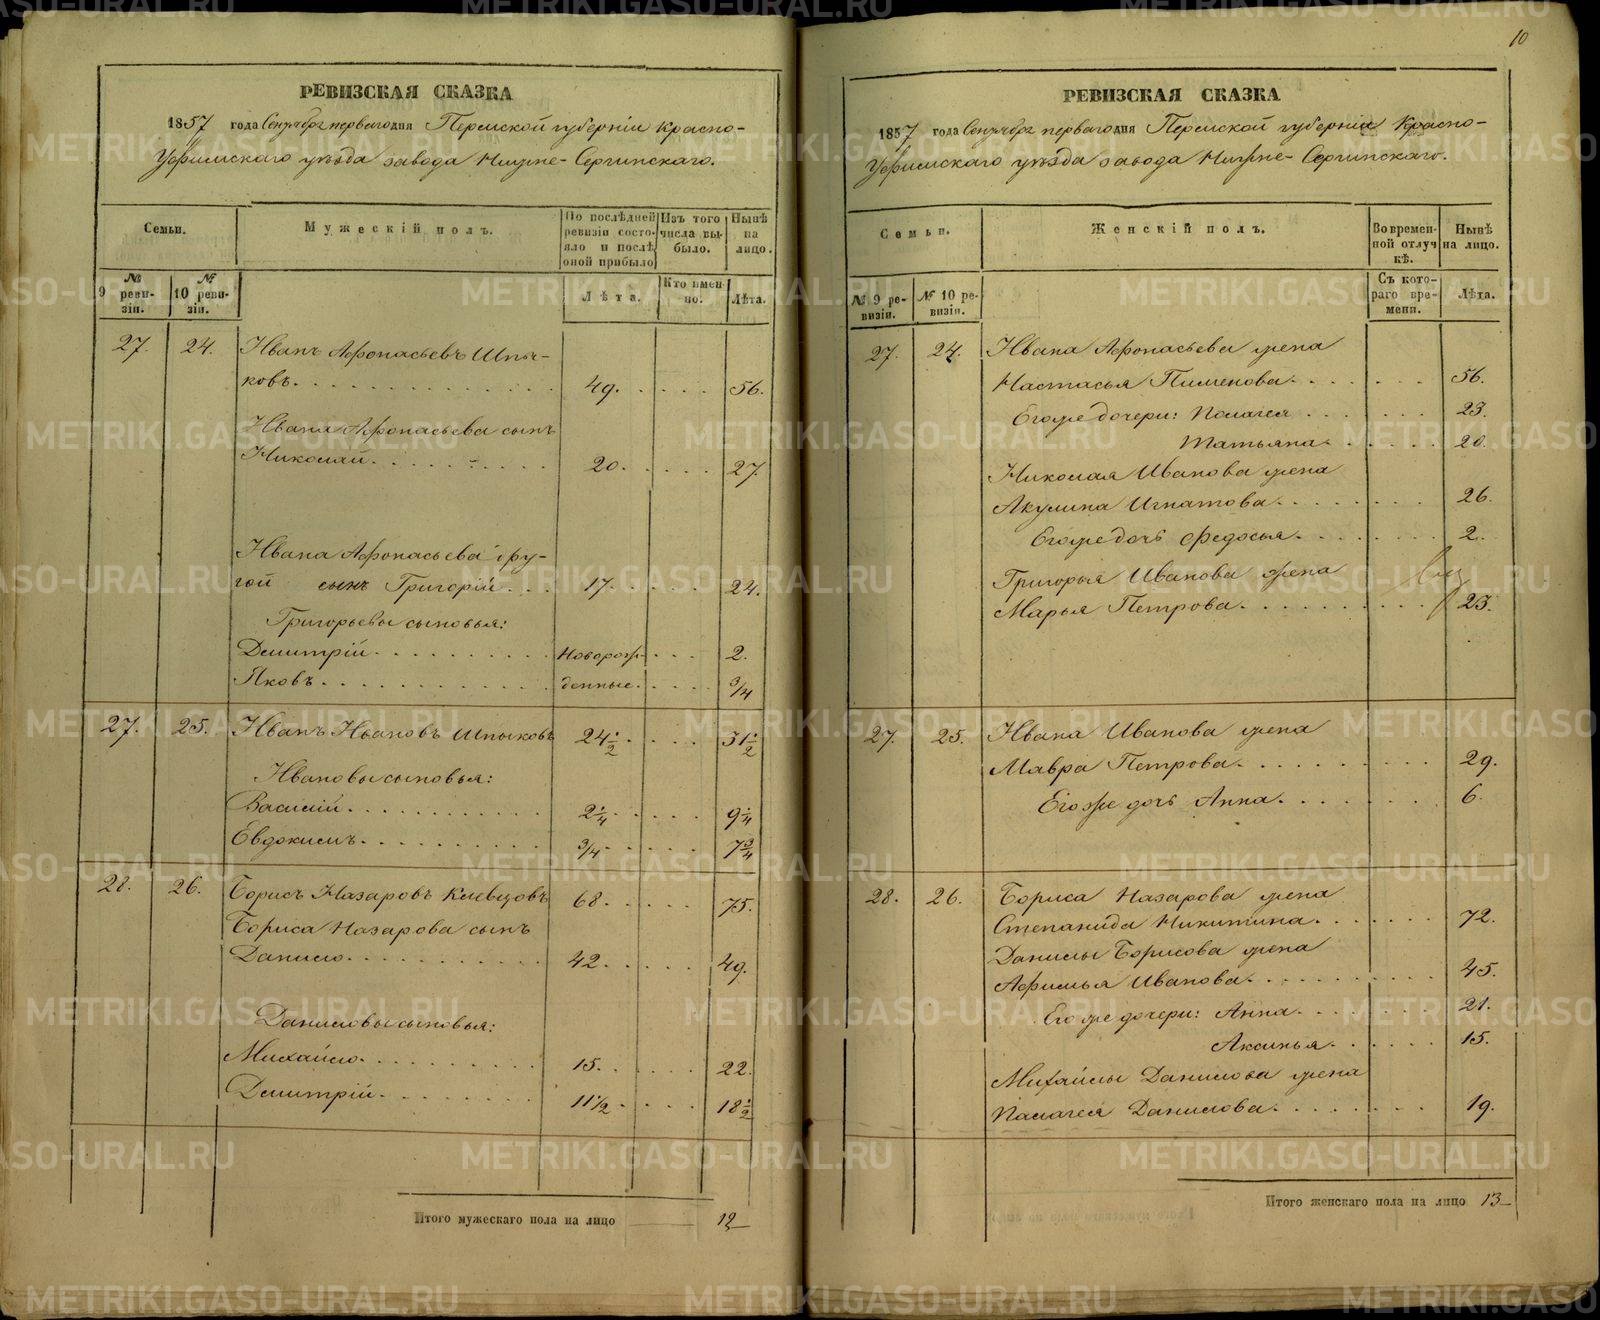 РЕВИЗСКАЯ СКАЗКА
1857 года Сентября перваго дня Пермской губернiи Красно-
Уфимскаго уѣзда завода Нижне-Сергинскаго.
Семьи.
Мужескiй полъ.
По послѣдней ревизiи состояло и послѣ оной прибыло
Изъ того числа выбыло.
Нынѣ на лицо.
№ 9 ревизiи.
№ 10 ревизiи.
Лѣта.
Кто именно.
Лѣта.
27. 24. Иванъ Афонасьевъ Шпы-
ковъ. 49. 56.
Ивана Афонасьева сынъ
Николай. 20. 27
Ивана Афонасьева дру-
гой сынъ Григорiй. 17. 24.
Григорьевы сыновья:
Дмитрiй. Новорож- 2.
Яковъ. денные. 3/4
27. 25. Иванъ Ивановъ Шпыковъ 24 1/2 31 1/2
Ивановы сыновья:
Василiй. 2 1/4 9 1/4
Евдокимъ. 3/4 7 3/4
28. 26. Борисъ Назаровъ Клевцовъ 68. 75.
Бориса Назарова сынъ
Данило. 42. 49.
Даниловы сыновья:
Михайло. 15. 22.
Дмитрiй. 11 1/2 18 1/2
Итого мужескаго пола на лицо 12
10
РЕВИЗСКАЯ СКАЗКА
1857 года Сентября перваго дня Пермской губернiи Красно-
Уфимскаго уѣзда завода Нижне-Сергинскаго.
Семьи.
Женскiй полъ.
Во временной отлучкѣ.
Нынѣ на лицо.
№ 9 ревизiи.
№ 10 ревизiи.
Съ котораго времени.
Лѣта.
27. 24. Ивана Афонасьева жена
Настасья Пименова. 56.
Его же дочери: Палагея 23.
Татьяна. 20.
Николая Иванова жена
Акулина Игнатова. 26.
Его же дочь Федосья. 2.
Григорья Иванова жена
Марья Петрова. 23.
27. 25. Ивана Иванова жена
Мавра Петрова. 29.
Его же дочь Анна. 6.
28. 26. Бориса Назарова жена
Степанида Никитина. 72.
Данилы Борисова жена
Афимья Иванова. 45.
Его же дочери: Анна. 21.
Аксинья. 15.
Михайлы Данилова жена
Палагея Данилова. 19.
Итого женскаго пола на лицо 13
METRIKI.GASO-URAL.RU